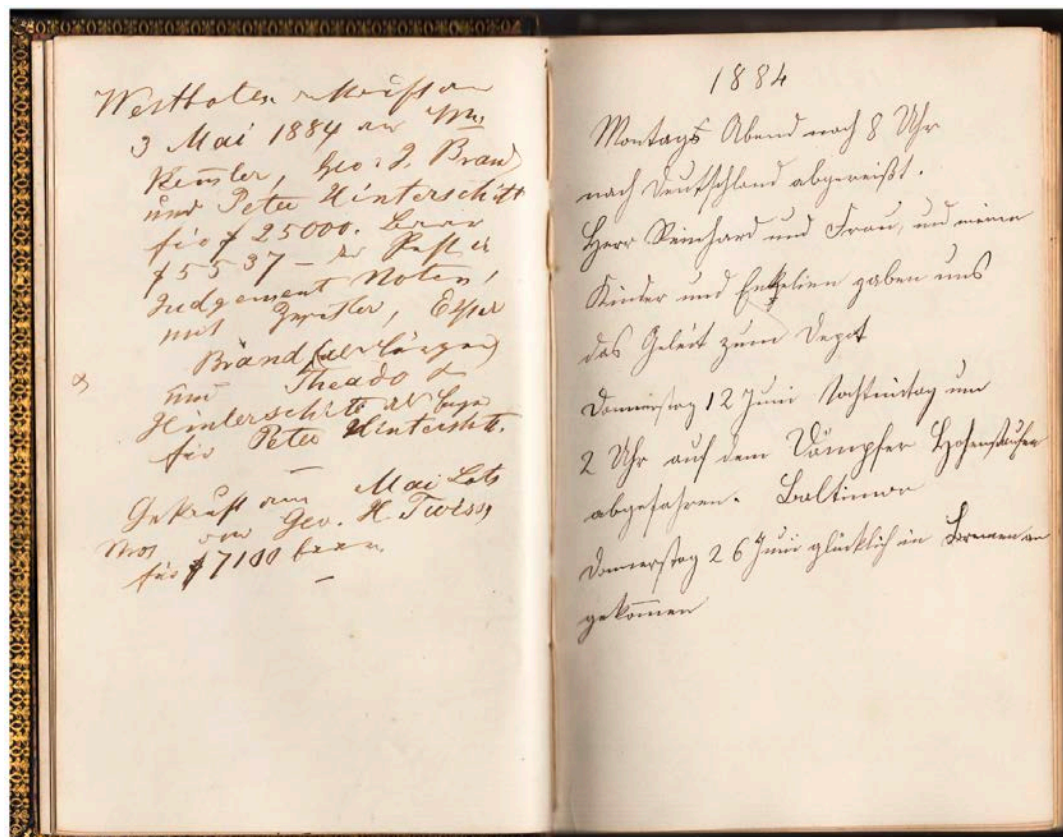 Westboten verkauft am
3 Mai 1884 an Wm
Kemler, Geo. J. Brand
und Peter Hinterschitt
für $ 25000. baar
$5537 – der Rest in
Judgement Noten,
mit Esther
Brand
und Theado
Hinterschitt als
für Peter Hinterschitt.
–
Gekauft am Mai Lots
von Geo. H. Twiss,
für $7100 baar.
–
1884
Montags Abend nach 8 Uhr
nach Deutschland abgereißt.
Herr Reinhard und Frau, und meine
Kinder und Enkelien gaben uns
das Geleit zum Depot
Donnerstag 12 Juni Nachmittag um
2 Uhr auf dem Dampfer Hohenstaufen
abgefahren. Baltimor
Donnerstag 26 Juni glücklich in Bremen an
gekommen